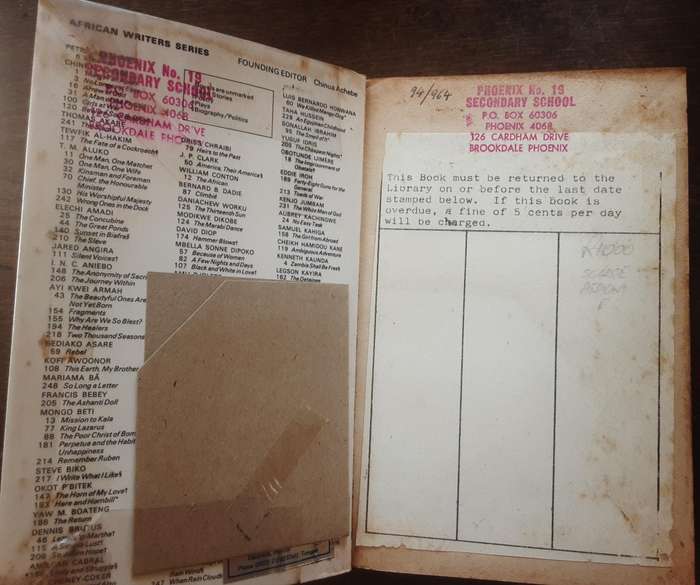 AFRICAN WRITERS SERIES
FOUNDING EDITOR Chinua Achebe
PHOENIX No. 19
SECONDARY SCHOOL
P.O. BOX 60306
PHOENIX 4068
CARDHAM DRIVE
BROOKDALE PHOENIX
are unmarked
Stories
Biography/Politics
THOMAS AKARE
241
TEWFIK AL-HAKIM
117 The Fate of a Cockroach
T. M. ALUKO
11 One Man, One Matchet
30 One Man, One Wife
32 Kinsman and Foreman
70 Chief, the Honourable
Minister
130 His Worshipful Majesty
242 Wrong Ones in the Dock
ELECHI AMADI
25 The Concubine
44 The Great Ponds
140 Sunset in Biafra§
210 The Slave
JARED ANGIRA
111 Silent Voices†
I. N. C. ANIEBO
148 The Anonymity of Sacr
206 The Journey Within
AYI KWEI ARMAH
43 The Beautyful Ones Are
Not Yet Born
154 Fragments
155 Why Are We So Blest?
194 The Healers
218 Two Thousand Seasons
BEDIAKO ASARE
59 Rebel
KOFI AWOONOR
108 This Earth, My Brother
MARIAMA BÂ
248 So Long a Letter
FRANCIS BEBEY
205 The Ashanti Doll
MONGO BETI
13 Mission to Kala
77 King Lazarus
88 The Poor Christ of Bom
181 Perpetua and the Habit
Unhappiness
214 Remember Ruben
STEVE BIKO
217 I Write What I Like§
OKOT P'BITEK
147 The Horn of My Love†
193 Hare and Hornbill*
YAW M. BOATENG
186 The Return
DENNIS BRUTUS
46
115
208
AMILCAR CABRAL
DRISS CHRAIBI
79 Heirs to the Past
J. P. CLARK
50 America, Their America§
WILLIAM CONTON
12 The African
BERNARD B. DADIE
87 Climbié
DANIACHEW WORKU
125 The Thirteenth Sun
MODIKWE DIKOBE
124 The Marabi Dance
DAVID DIOP
174 Hammer Blows†
MBELLA SONNE DIPOKO
57 Because of Women
82 A Few Nights and Days
107 Black and White in Love†
LUIS BERNARDO HONWANA
60 We Killed Mangy-Dog*
TAHA HUSSEIN
228 An Egyptian Childhood
SONALLAH IBRAHIM
95 The Smell of It*
YUSUF IDRIS
209 The Cheapest Nights*
OBOTUNDE IJIMERE
18 The Imprisonment of
Obatala‡
EDDIE IRON
189 Forty-Eight Guns for the
General
213 Toads of War
KENJO JUMBAM
231 The White Man of God
AUBREY KACHINGWE
24 No Easy Task
SAMUEL KAHIGA
158 The Girl from Abroad
CHEIKH HAMIDOU KANE
119 Ambiguous Adventure
KENNETH KAUNDA
4 Zambia Shall Be Free§
LEGSON KAYIRA
162 The Detainee
247 When Rain Clouds
94/964
PHOENIX No. 19
SECONDARY SCHOOL
P.O. BOX 60306
PHOENIX 4068
126 CARDHAM DRIVE
BROOKDALE PHOENIX
This Book must be returned to the
Library on or before the last date
stamped below. If this Book is
overdue, a fine of 5 cents per day
will be charged.